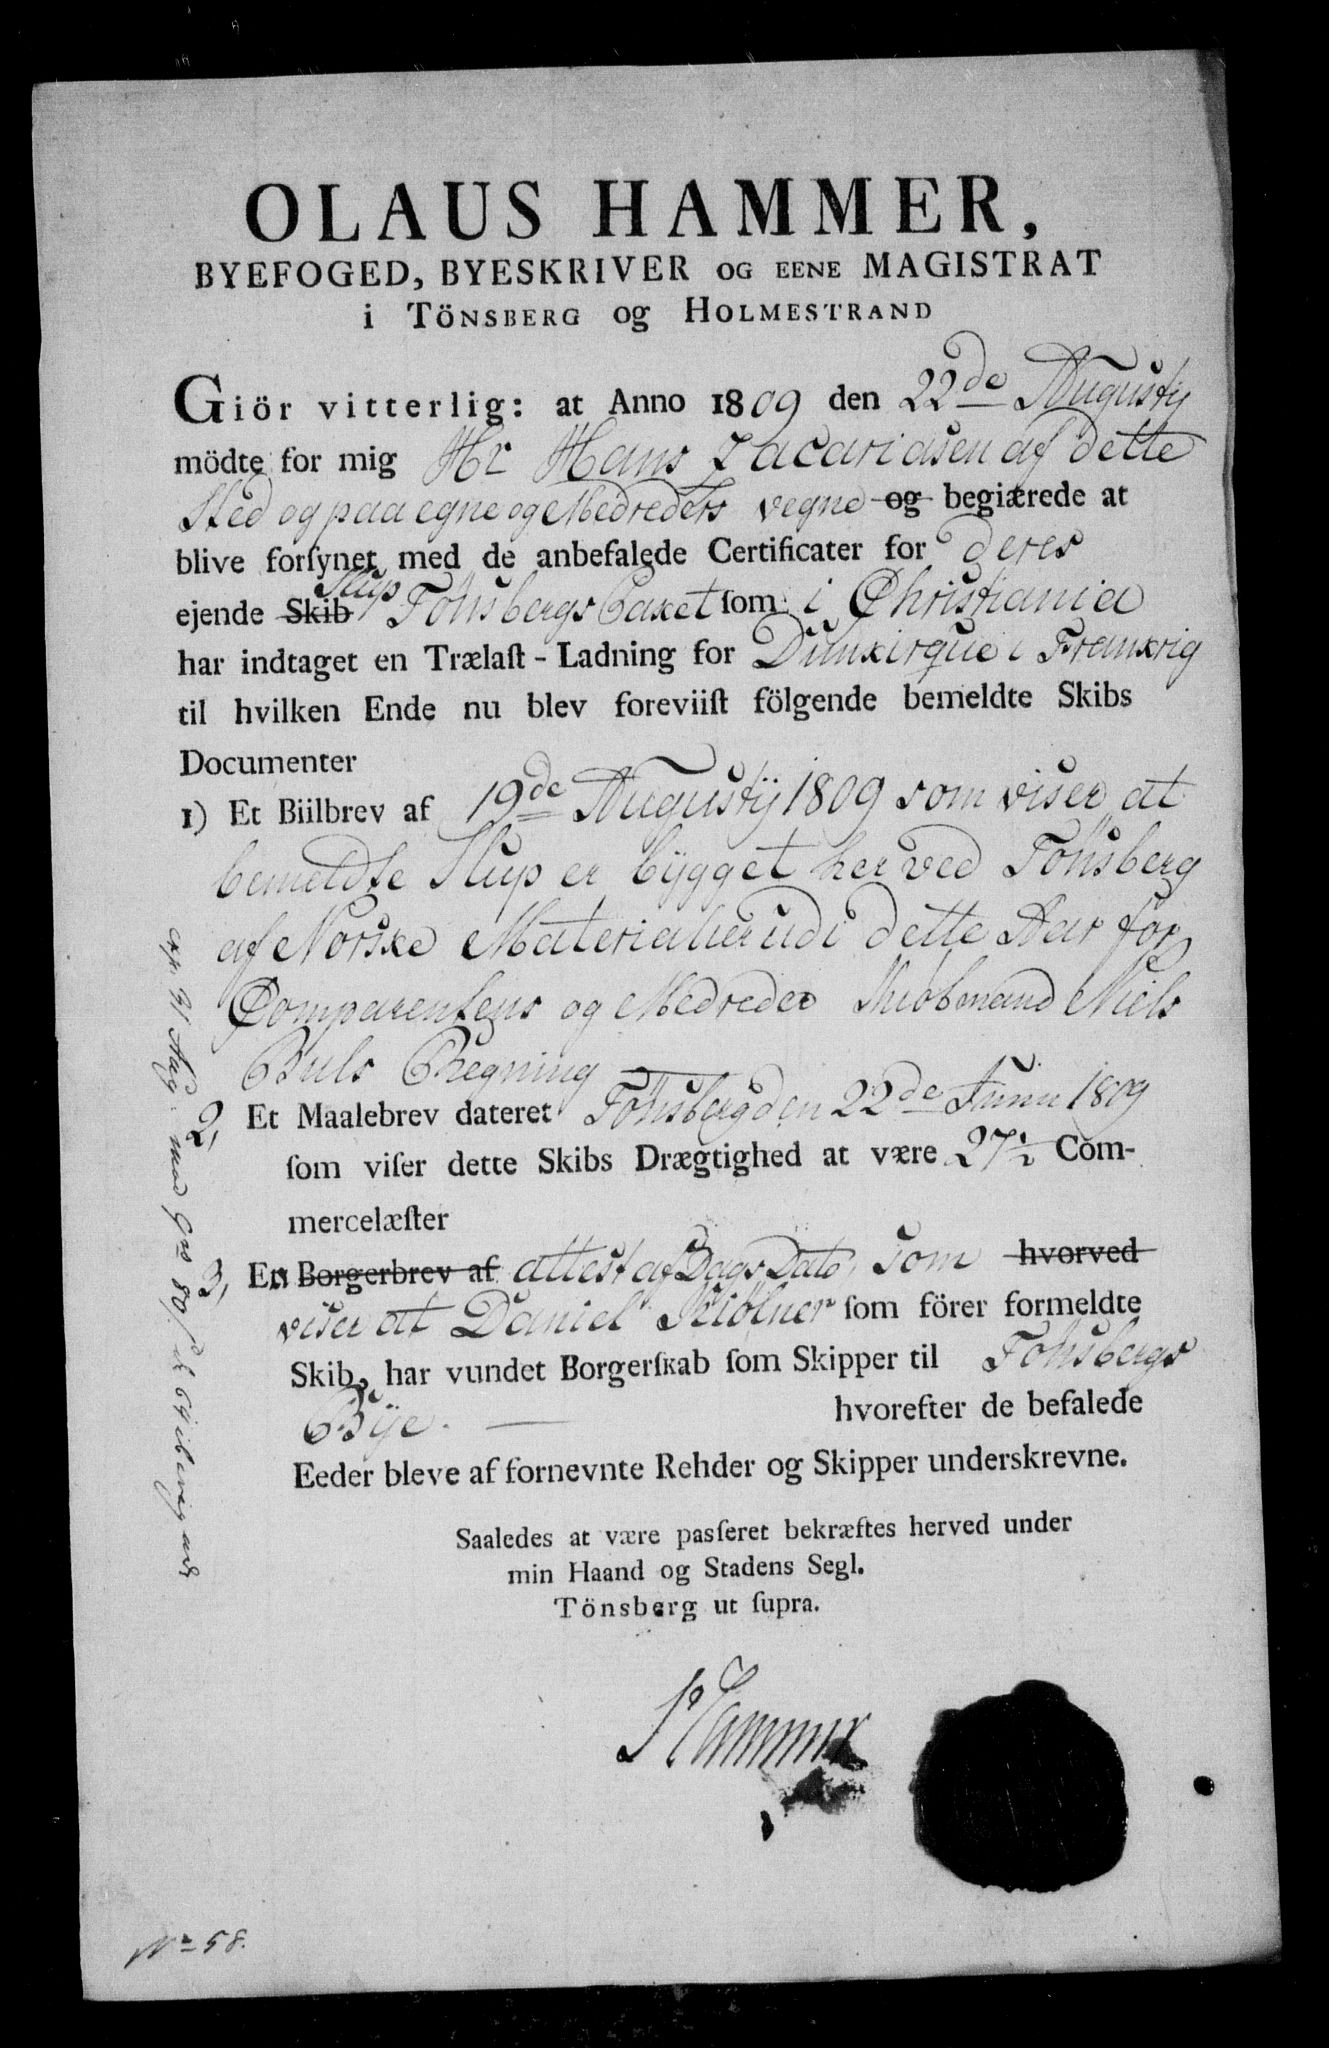 OLAUS HAMMER,
BYEFOGED, BYESKRIVER OG EENE MAGISTRAT
i TÖNSBERG og HOLMESTRAND
Giör vitterlig: at Anno 1809 den 22de Augusty
mödte for mig Hr Hans Zacariasen af dette
Sted og paa egne og Medreders vegne og begiærede at
blive forſynet med de anbefalede Certificater for deres
Slup
ejende Skib Tönsbergs Paket ſom i Christiania
har indtaget en Trælaſt-Ladning for Dunkirque i Frankrig
til hvilken Ende nu blev foreviiſt fölgende bemeldte Skibs
Documenter
1) Et Biilbrev af 19de Augustÿ 1809 som viser at
bemeldte Slup er bÿgget her ved Tönsberg
af Norske Materialier udi dette Aar for
Comparentens og Medreder Kiøbmand Niels
Buls Regning
2, Et Maalebrev dateret Tönsberg den 22de Junii 1809
ſom viſer dette Skibs Drægtighed at være 27½ Com-
mercelæſter
3, En Borgerbrev af attest af Dags Dato, som hvorved
viser at Daniel Kiölner ſom förer formeldte
Skib, har vundet Borgerſkab ſom Skipper til Tönsbergs
Bÿe. hvorefter de befalede
Eeder bleve af fornevnte Rehder og Skipper underskrevne.
Saaledes at være pasſeret bekræftes herved under
min Haand og Stadens Segl.
Tönsberg ut ſupra.
Hammer
No 58.